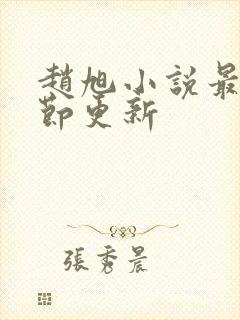 趙旭小說最
節更新
張秀晨